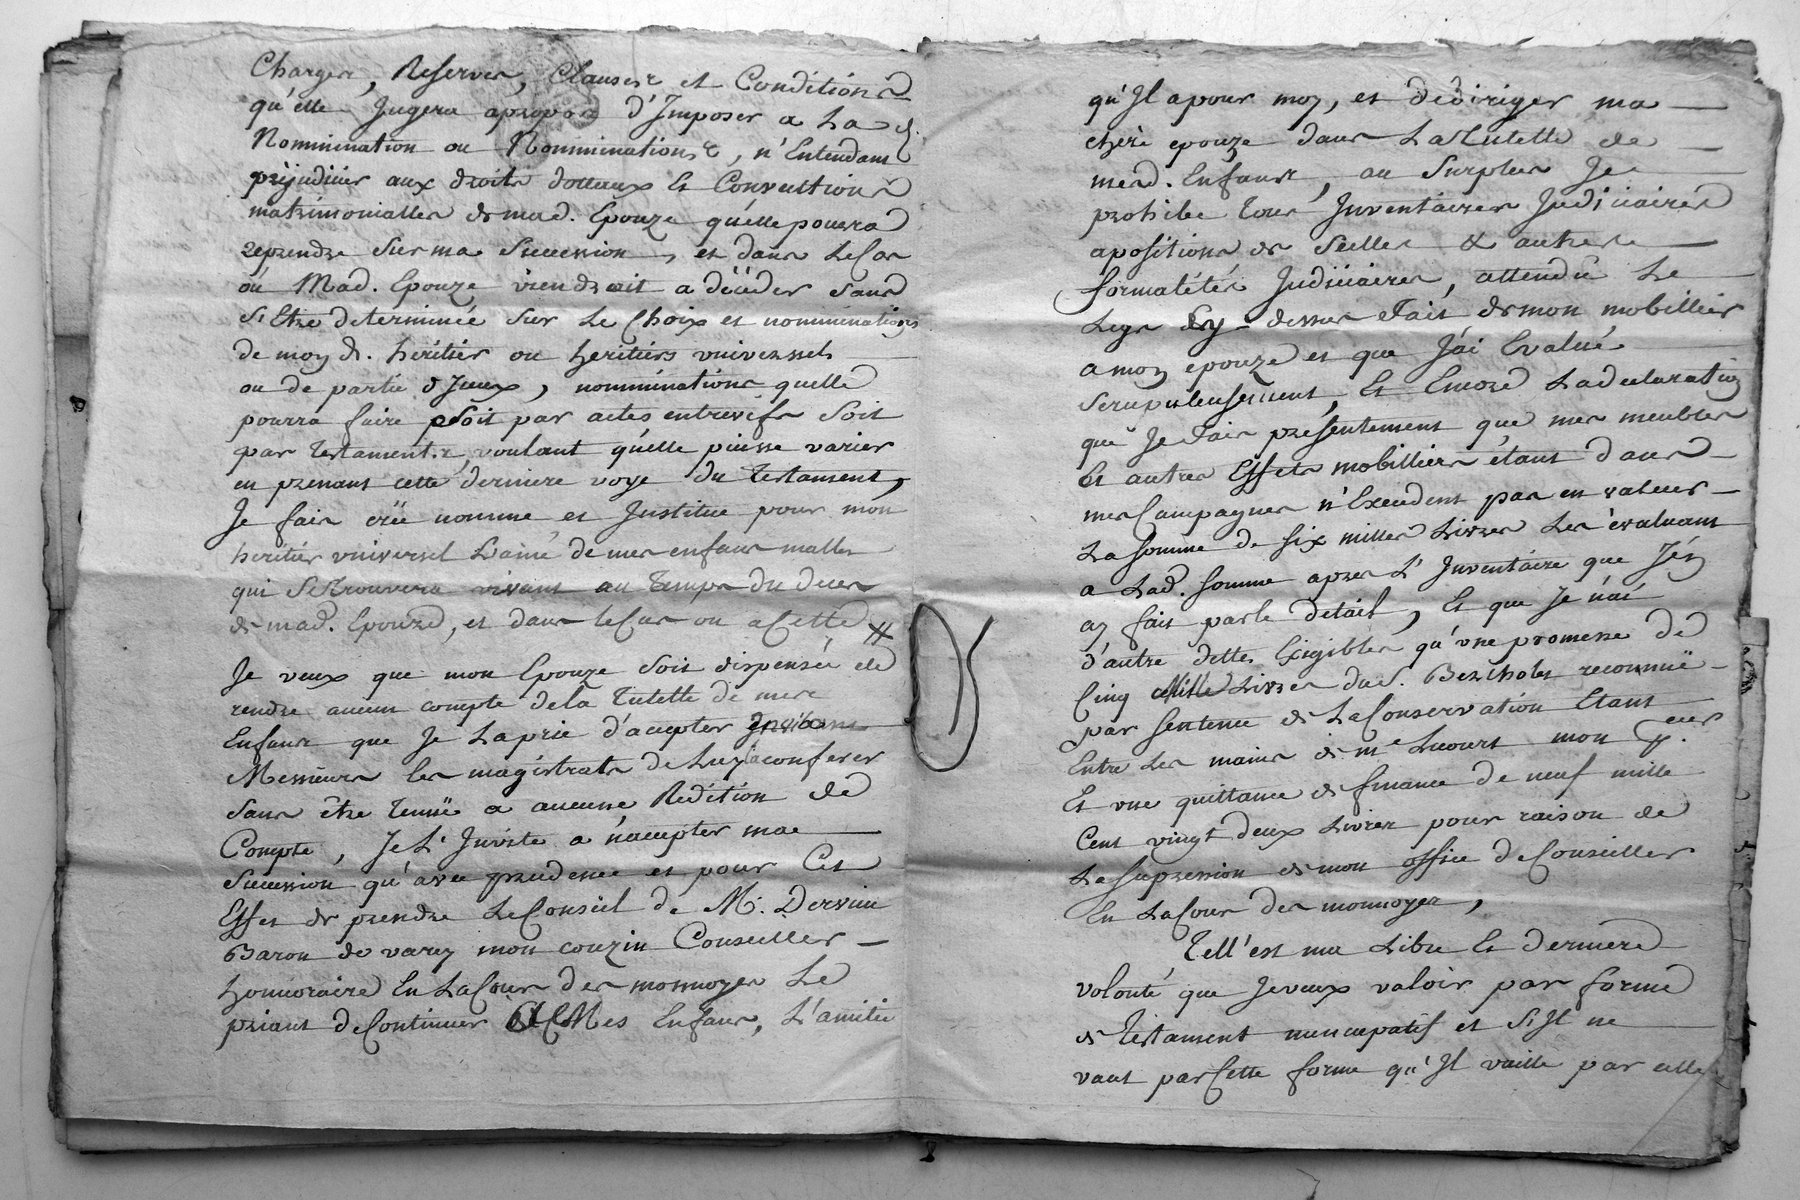 Charges, Reserves, Clauses et Conditions
qu'elle Jugera apropos d'Imposer a La d.
Nommination ou Nomminations, n'Entendant
prejudicier aux droits dotteaux Et Convention
matrimonialles de mad. Epouze qu'elle poura
reprendre sur ma Succession, et dans Le Cas
où Mad. Epouze viendroit a décéder sans
s'Etre determinée sur Le Choix et nomminations
de mon d. héritier ou heritiers vniversels
ou de partie d'Jceux, nomminations quelle
pourra faire soit par actes entrevifs Soit
par Testament, voulant qu'elle puisse varier
en prenant cette derniere voye du Testament,
Je fais crée nomme et Jnstitue pour mon
heritier vniversel L'ainé de mes enfans malles
qui Se trouvera vivant au Temps du deces
de mad. Epouze, et dans le Cas ou a Cette
Je veux que mon Epouze Soit dispensée de
rendre aucun compte de la Tutelle de mes
Enfans que Je La prie d'acepter
Messieurs les magistrats de Luy la conferer
Sans être Tenuë a aucune Redition de
Compte, Je L'Jnvite a n'accepter ma
Succession qu'avec prudence et pour Cet
Effet de prendre Le Conseil de M. Dervieu
Baron de varey mon couzin Conseiller
honnoraire En La Cour des monnoyes Le
priant de Continuer A Mes Enfans, L'amitie
qu'Jl a pour moy, et de diriger ma
chere epouze dans La Tutelle de
mesd. Enfans, au Surplus Je
prohibe Tous Jnventaires Judiciaires
apositions de Scelles & autres
formalités Judiciaires, attendû Le
Legs Cy-dessus Fait de mon mobillier
a mon epouze et que J'ai Evalué
Scrupuleusement, Et Encore La declaration
que Je Fais presentement que mes meubles
Et autres Effets mobilliers étant dans
mes Campagnes n'Excedent pas en valeur
La Somme de six milles Livres Les évaluant
a Lad. somme apres L'Jnventaire que J'en
ay fait par le detail, Et que Je n'ai
d'autre dettes Exigibles qu'vne promesse de
Cinq Mille Livres du S. Bertholet reconnuë
par Sentence de La Conservation Etant
Entre Les mains de me Lucourt mon pr.eur
Et vne quittance de finance de neuf mille
Cent vingt deux Livres pour raison de
La Supression de mon office de Conseiller
En La Cour des monnoyes,
Tell'est ma Libre Et derniere
volonté que Je veux valoir par forme
de Testament nuncupatif et S'Jl ne
vaut par Cette forme qu'Jl vaille par celle